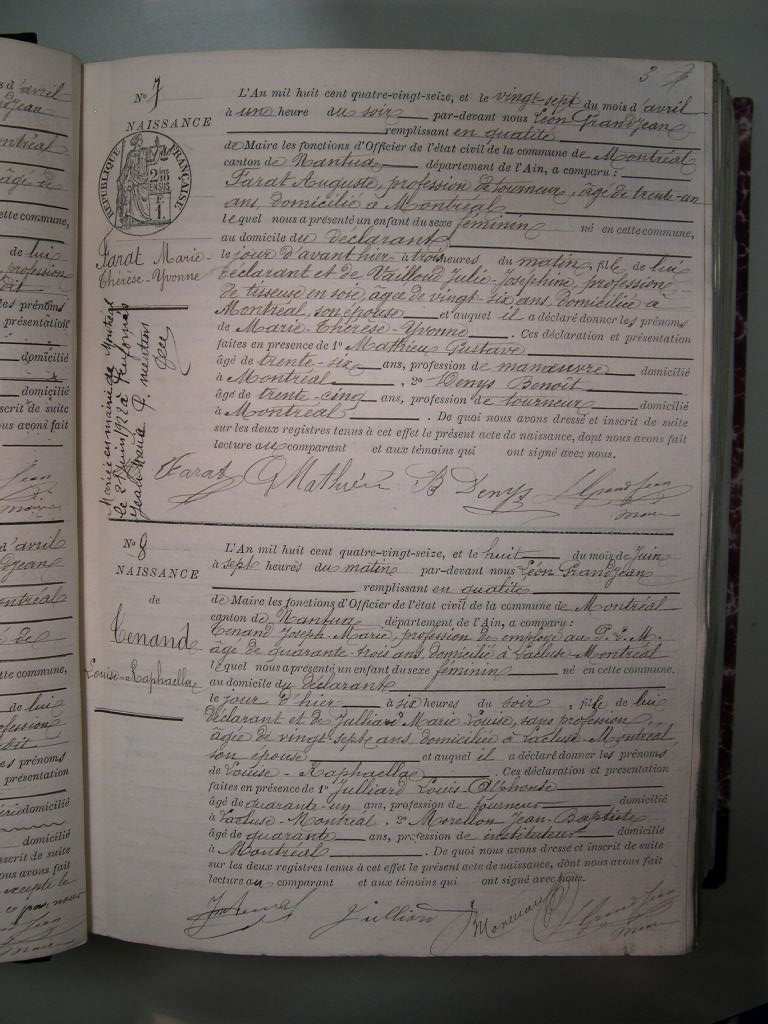 3
N° 7
NAISSANCE
RÉPUBLIQUE FRANÇAISE
Farat Marie-
Thérèse-Yvonne
Mariée en mairie de Montréal
le 2 juin 1921 à
L'An mil huit cent quatre-vingt-seize, et le vingt-sept du mois d'avril
à une heure du soir par-devant nous Léon Grandjean
remplissant en qualité
de Maire les fonctions d'Officier de l'état civil de la commune de Montréal
canton de Nantua département de l'Ain, a comparu :
Farat Auguste, profession de tourneur, âgé de trente-un
ans domicilié à Montréal
lequel nous a présenté un enfant du sexe féminin né en cette commune,
au domicile du déclarant
le jour d'avant hier à trois heures du matin, fille de lui
déclarant et de Vailloud Julie-Joséphine, profession
de tisseuse en soie, âgée de vingt-six ans domiciliée à
Montréal, son épouse et auquel il a déclaré donner les prénoms
de Marie-Thérèse-Yvonne. Ces déclaration et présentation
faites en présence de 1° Mathieu Gustave
âgé de trente-six ans, profession de manœuvre domicilié
à Montréal, 2° Denys Benoit
âgé de trente-cinq ans, profession de tourneur domicilié
à Montréal. De quoi nous avons dressé et inscrit de suite
sur les deux registres tenus à cet effet le présent acte de naissance, dont nous avons fait
lecture au comparant et aux témoins qui ont signé avec nous.
Farat G Mathieu B Denys L Grandjean
maire
N° 8
NAISSANCE
de
Tenand
Louise-Raphaëlla
L'An mil huit cent quatre-vingt-seize, et le huit du mois de Juin
à sept heures du matin par-devant nous Léon Grandjean
remplissant en qualité
de Maire les fonctions d'Officier de l'état civil de la commune de Montréal
canton de Nantua département de l'Ain, a comparu :
Tenand Joseph-Marie, profession de employé au P. L. M.
âgé de quarante-trois ans domicilié à Lacluse-Montréal
lequel nous a présenté un enfant du sexe féminin né en cette commune.
au domicile du déclarant
le jour d'hier à six heures du soir, fille de lui
déclarant et de Julliard Marie Louise, sans profession,
âgée de vingt-sept ans domiciliée à Lacluse-Montréal
son épouse et auquel il a déclaré donner les prénoms
de Louise-Raphaëlla. Ces déclaration et présentation
faites en présence de 1° Julliard Louis Alphonse
âgé de quarante-un ans, profession de tourneur domicilié
à Lacluse-Montréal. 2° Morellon Jean-Baptiste
âgé de quarante ans, profession de instituteur domicilié
à Montréal. De quoi nous avons dressé et inscrit de suite
sur les deux registres tenus à cet effet le présent acte de naissance, dont nous avons fait
lecture au comparant et aux témoins qui ont signé avec nous.
Julliard L Grandjean
maire